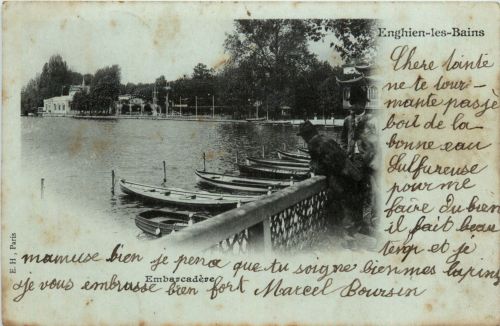 Enghien-les-Bains
Chere tainte
ne te tour-
mante pas je
boit de la
bonne eau
Sulfureuse
pour me
faire du bien
il fait beau
temp et je
mamuse bien je pence que tu soigne bien mes lapins
je vous embrasse bien fort Marcel Boursin
Embarcadère
E. H., Paris